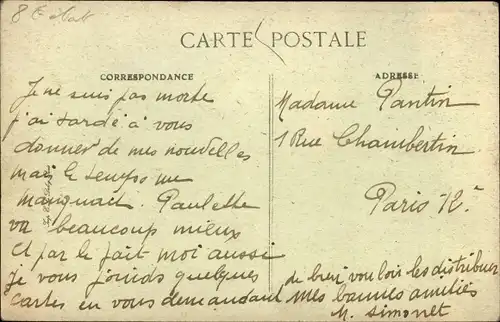 8 État
CARTE POSTALE
CORRESPONDANCE
ADRESSE
Je ne suis pas morte
j'ai tardé à vous
donner de mes nouvelles
mais le temps me
manquait. Paulette
va beaucoup mieux
et par le fait moi aussi
je vous joinds quelques
cartes en vous demandant
de bien vouloir les distribuer
Mes bonnes amitiés
M. Simonet
Madame Pantin
1 Rue Chambertin
Paris 12e